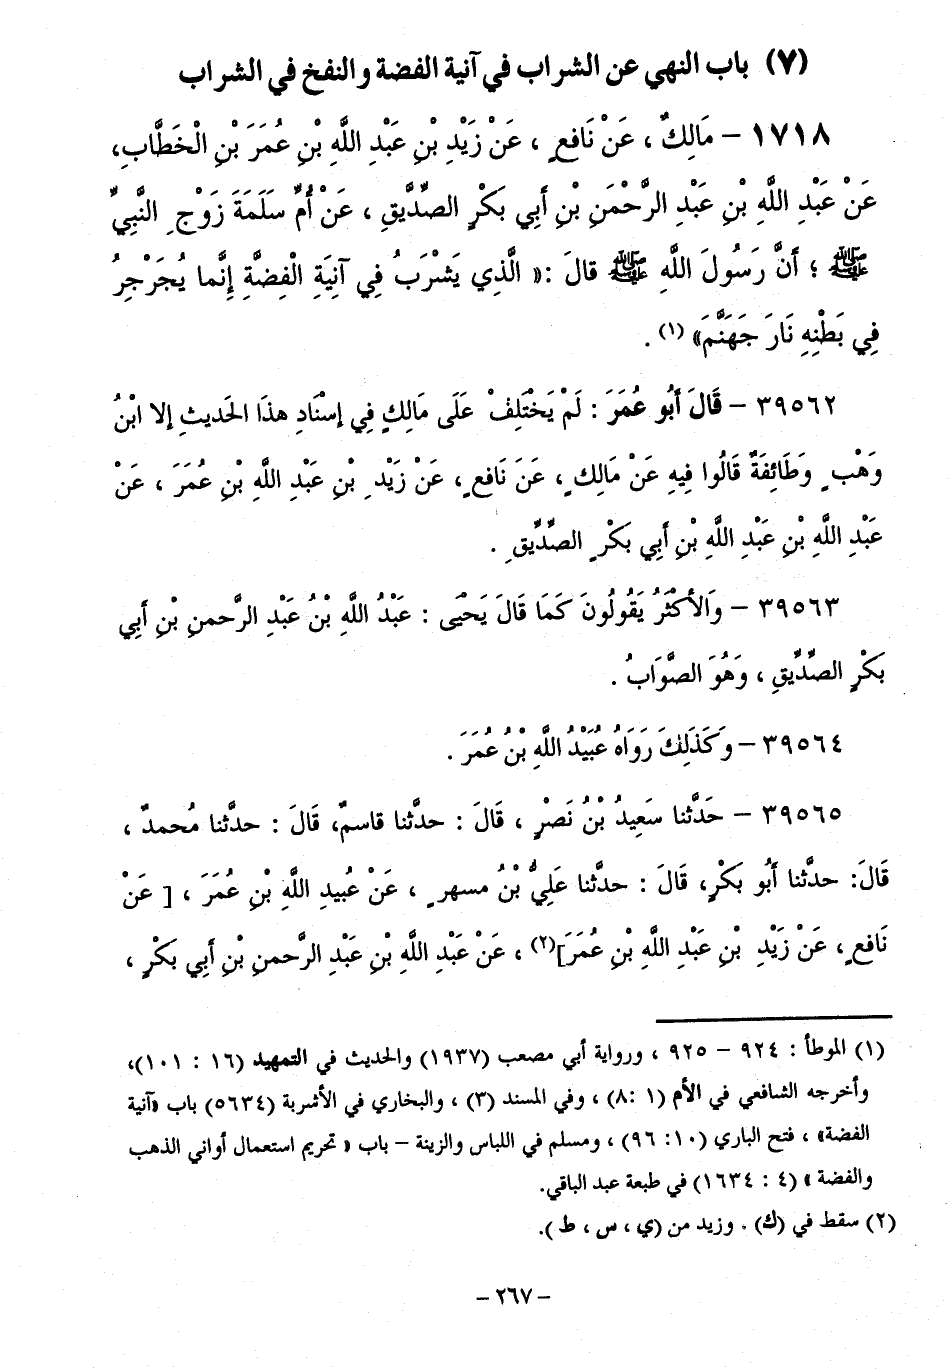 (٧) باب النهي عن الشراب في آنية الفضة والنفخ في الشراب
١٧١٨ – مَالِكٌ ، عَنْ نَافِعٍ ، عَنْ زَيْدِ بْنِ عَبْدِ اللَّهِ بْنِ عُمَرَ بْنِ الْخَطَّابِ،
عَنْ عَبْدِ اللَّهِ بْنِ عَبْدِ الرَّحْمَنِ بْنِ أَبِي بَكْرٍ الصِّدِّيقِ ، عَنْ أُمِّ سَلَمَةَ زَوْجِ النَّبِيِّ
ﷺ ؛ أَنَّ رَسُولَ اللَّهِ ﷺ قالَ :« الَّذِي يَشْرَبُ فِي آنِيَةِ الْفِضَّةِ إِنَّما يُجَرْجِرُ
فِي بَطْنِهِ نَارَ جَهَنَّمَ» (١) .
٣٩٥٦٢ – قَالَ أَبُو عُمَرَ : لَمْ يَخْتَلِفْ عَلَى مَالِكٍ فِي إِسْنَادِ هذَا الحَديثِ إلا ابْنُ
وَهْبٍ وَطَائِفَةٌ قَالُوا فِيهِ عَنْ مَالِكٍ ، عَنَ نَافِعٍ ، عَنْ زَيْدِ بْنِ عَبْدِ اللَّهِ بْنِ عُمَرَ ، عَنْ
عَبْدِ اللَّهِ بْنِ عَبْدِ اللَّهِ بْنِ أَبِي بَكْرٍ الصِّدِّيقِ .
٣٩٥٦٣ – وَالأكْثَرُ يَقُولُونَ كَمَا قَالَ يَحْيَى : عَبْدُ اللَّهِ بْنُ عَبْدِ الرَّحمنِ بْنِ أَبِي
بَكْرٍ الصِّدِّيقِ ، وَهُوَ الصَّوَابُ .
٣٩٥٦٤ – وَكَذَلِكَ رَوَاهُ عُبَيْدُ اللَّهِ بْنُ عُمَرَ .
٣٩٥٦٥ – حَدَّثنا سَعِيدُ بْنُ نَصْرٍ ، قَالَ : حدَّثنا قاسمٌ، قَالَ : حدثَّنا مُحمدٌ ،
قَالَ: حدثَّنا أَبُو بَكْرٍ، قَالَ : حدثَّنا عَلِيُّ بْنُ مسهرٍ ، عَنْ عُبيدِ اللَّهِ بْنِ عُمَرَ ، [ عَنْ
نَافِعٍ ، عَنْ زَيْدِ بْنِ عَبْدِ اللَّهِ بْنِ عُمَرَ](٢) ، عَنْ عَبْدِ اللَّهِ بْنِ عَبْدِ الرَّحمنِ بْنِ أَبِي بَكْرٍ ،
(١) الموطأ : ٩٢٤ – ٩٢٥ ، ورواية أبي مصعب (١٩٣٧) والحديث في التمهيد (١٦ : ١٠١)،
وأخرجه الشافعي في الأم (١ :٨) ، وفي المسند (٣) ، والبخاري في الأشربة (٥٦٣٤) باب «آنية
الفضة» ، فتح الباري (١٠: ٩٦) ، ومسلم في اللباس والزينة – باب « تحريم استعمال أواني الذهب
والفضة » (٤ : ١٦٣٤) في طبعة عبد الباقي.
(٢) سقط في (ك) . وزيد من (ي ، س ، ط ).
– ٢٦٧ –